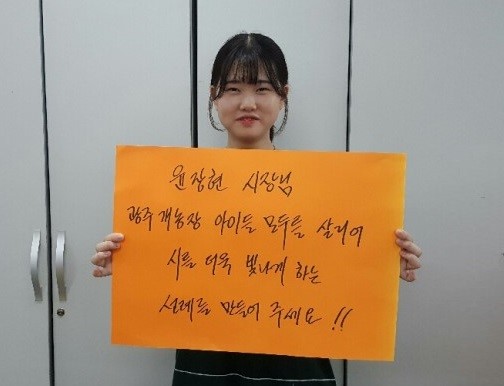 윤장현 시장님
광주 개농장 아이들 모두를 살리어
시를 더욱 빛나게 하는
선례를 만들어 주세요!!